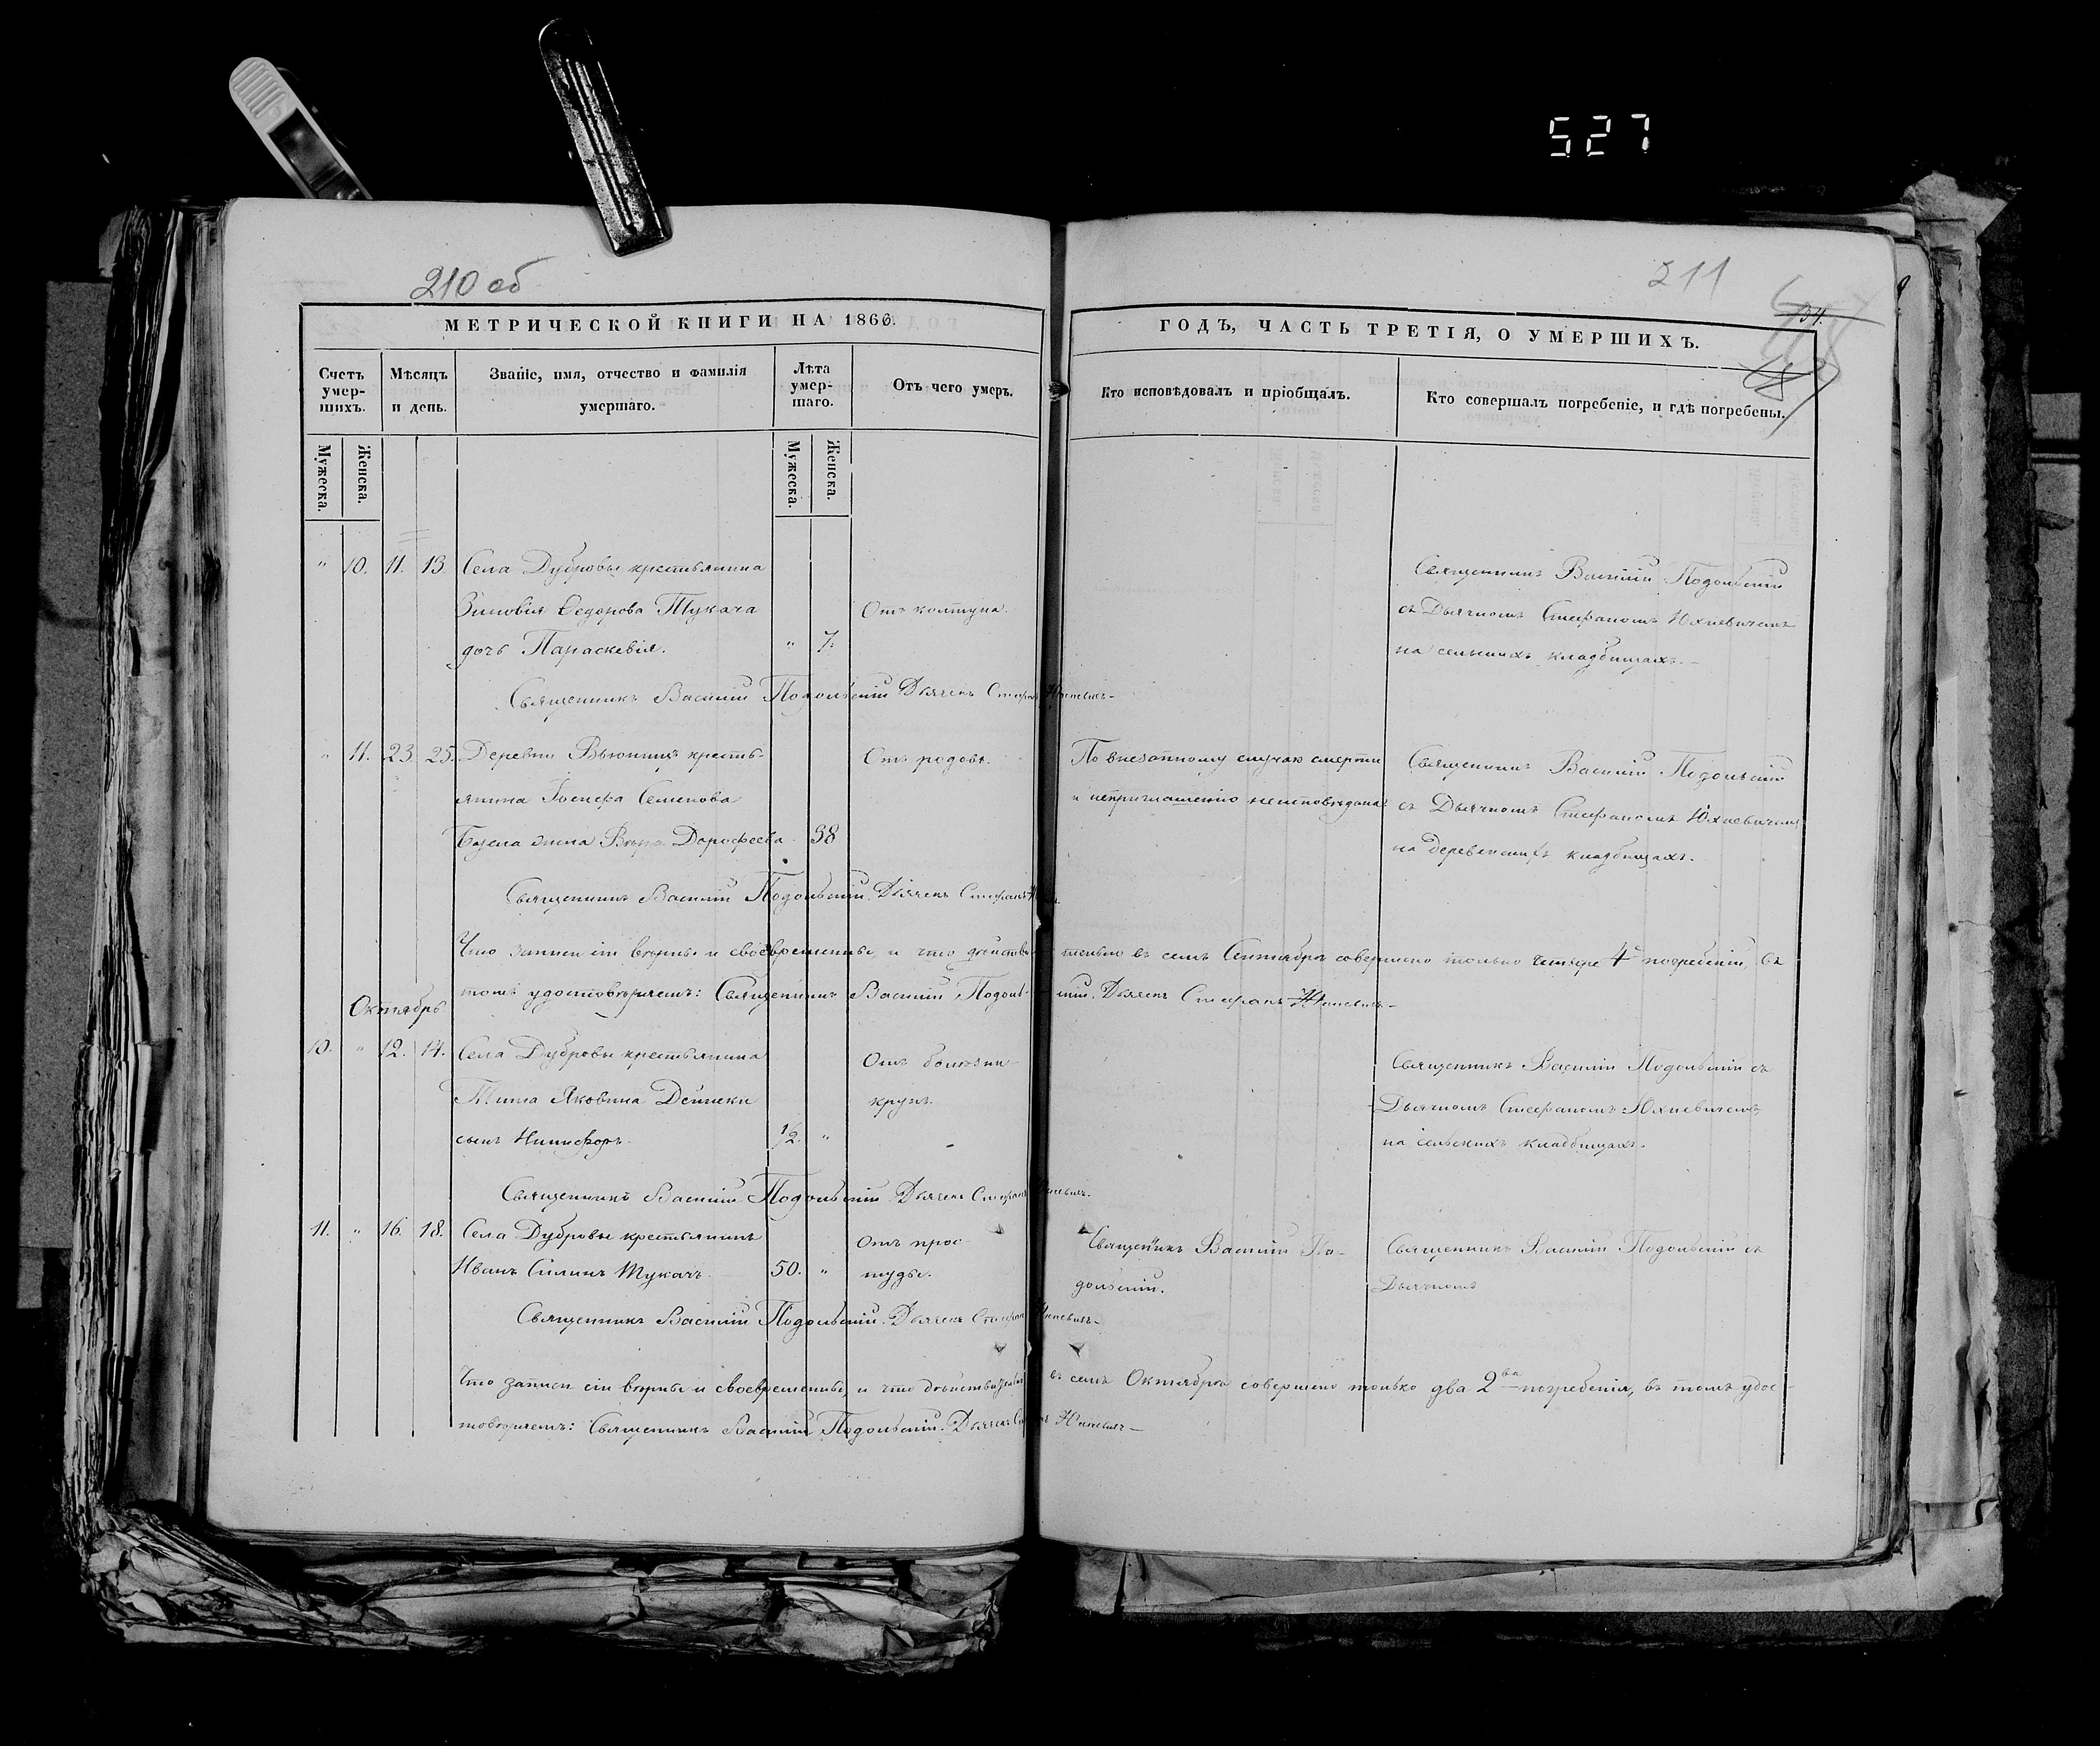 527
210 об
211
34.
МЕТРИЧЕСКОЙ КНИГИ НА 1866.
ГОДЪ, ЧАСТЬ ТРЕТІЯ, О УМЕРШИХЪ.
Счетъ умер-шихъ.
Мѣсяцъ и день.
Званіе, имя, отчество и фамилія умершаго.
Лѣта умер-шаго.
Отъ чего умеръ.
Кто исповѣдовалъ и пріобщалъ.
Кто совершалъ погребеніе, и гдѣ погребены.
Мужеска.
Женска.
Мужеска.
Женска.
" 10. 11. 13. Села Дубровы крестьянина
Зиновія Ѳедорова Тукача
дочь Параскевія. " 7.
Отъ колтуна.
Священникъ Василій Подольскій
съ Дьячкомъ Стефаномъ Юхневичемъ
на сельскихъ кладбищахъ.
Священникъ Василій Подольскій Дьячекъ Стефанъ Юхневичъ
" 11. 23. 25. Деревни Вьюнищъ кресть-
янина Іосифа Семенова
жена Вѣра Дорофеева 38
Отъ родовъ.
По внезапному случаю смерти
и неприглашенію неисповѣдана
Священникъ Василій Подольскій
съ Дьячкомъ Стефаномъ Юхневичемъ
на деревенскихъ кладбищахъ.
Священникъ Василій Подольскій. Дьячекъ Стефанъ
Что записи сіи вѣрны и своевременны, и что дѣйствительно въ семъ Сентябрѣ совершено только четыре 4 погребеній, въ
томъ удостовѣряемъ: Священникъ Василій Подольскій. Дьячекъ Стефанъ Юхневичъ
Октябрь
10. " 12. 14. Села Дубровы крестьянина
Тита Яковина Дейнеки
сынъ Никифоръ. 1/2. "
Отъ болѣзни
крупъ.
Священникъ Василій Подольскій съ
Дьячкомъ Стефаномъ Юхневичемъ
на сельскихъ кладбищахъ.
Священникъ Василій Подольскій Дьячекъ Стефанъ Юхневичъ.
11. " 16. 18. Села Дубровы крестьянинъ
Иванъ Силинъ Тукачъ. 50. "
Отъ прос-
туды.
Священникъ Василій По-
дольскій.
Священникъ Василій Подольскій съ
Дьячкомъ
Священникъ Василій Подольскій. Дьячекъ Стефанъ Юхневичъ
Что записи сіи вѣрны и своевременны, и что дѣйствительно въ семъ Октябрѣ совершено только два 2ва погребенія, въ томъ удос-
товѣряемъ: Священникъ Василій Подольскій. Дьячекъ Стефанъ Юхневичъ